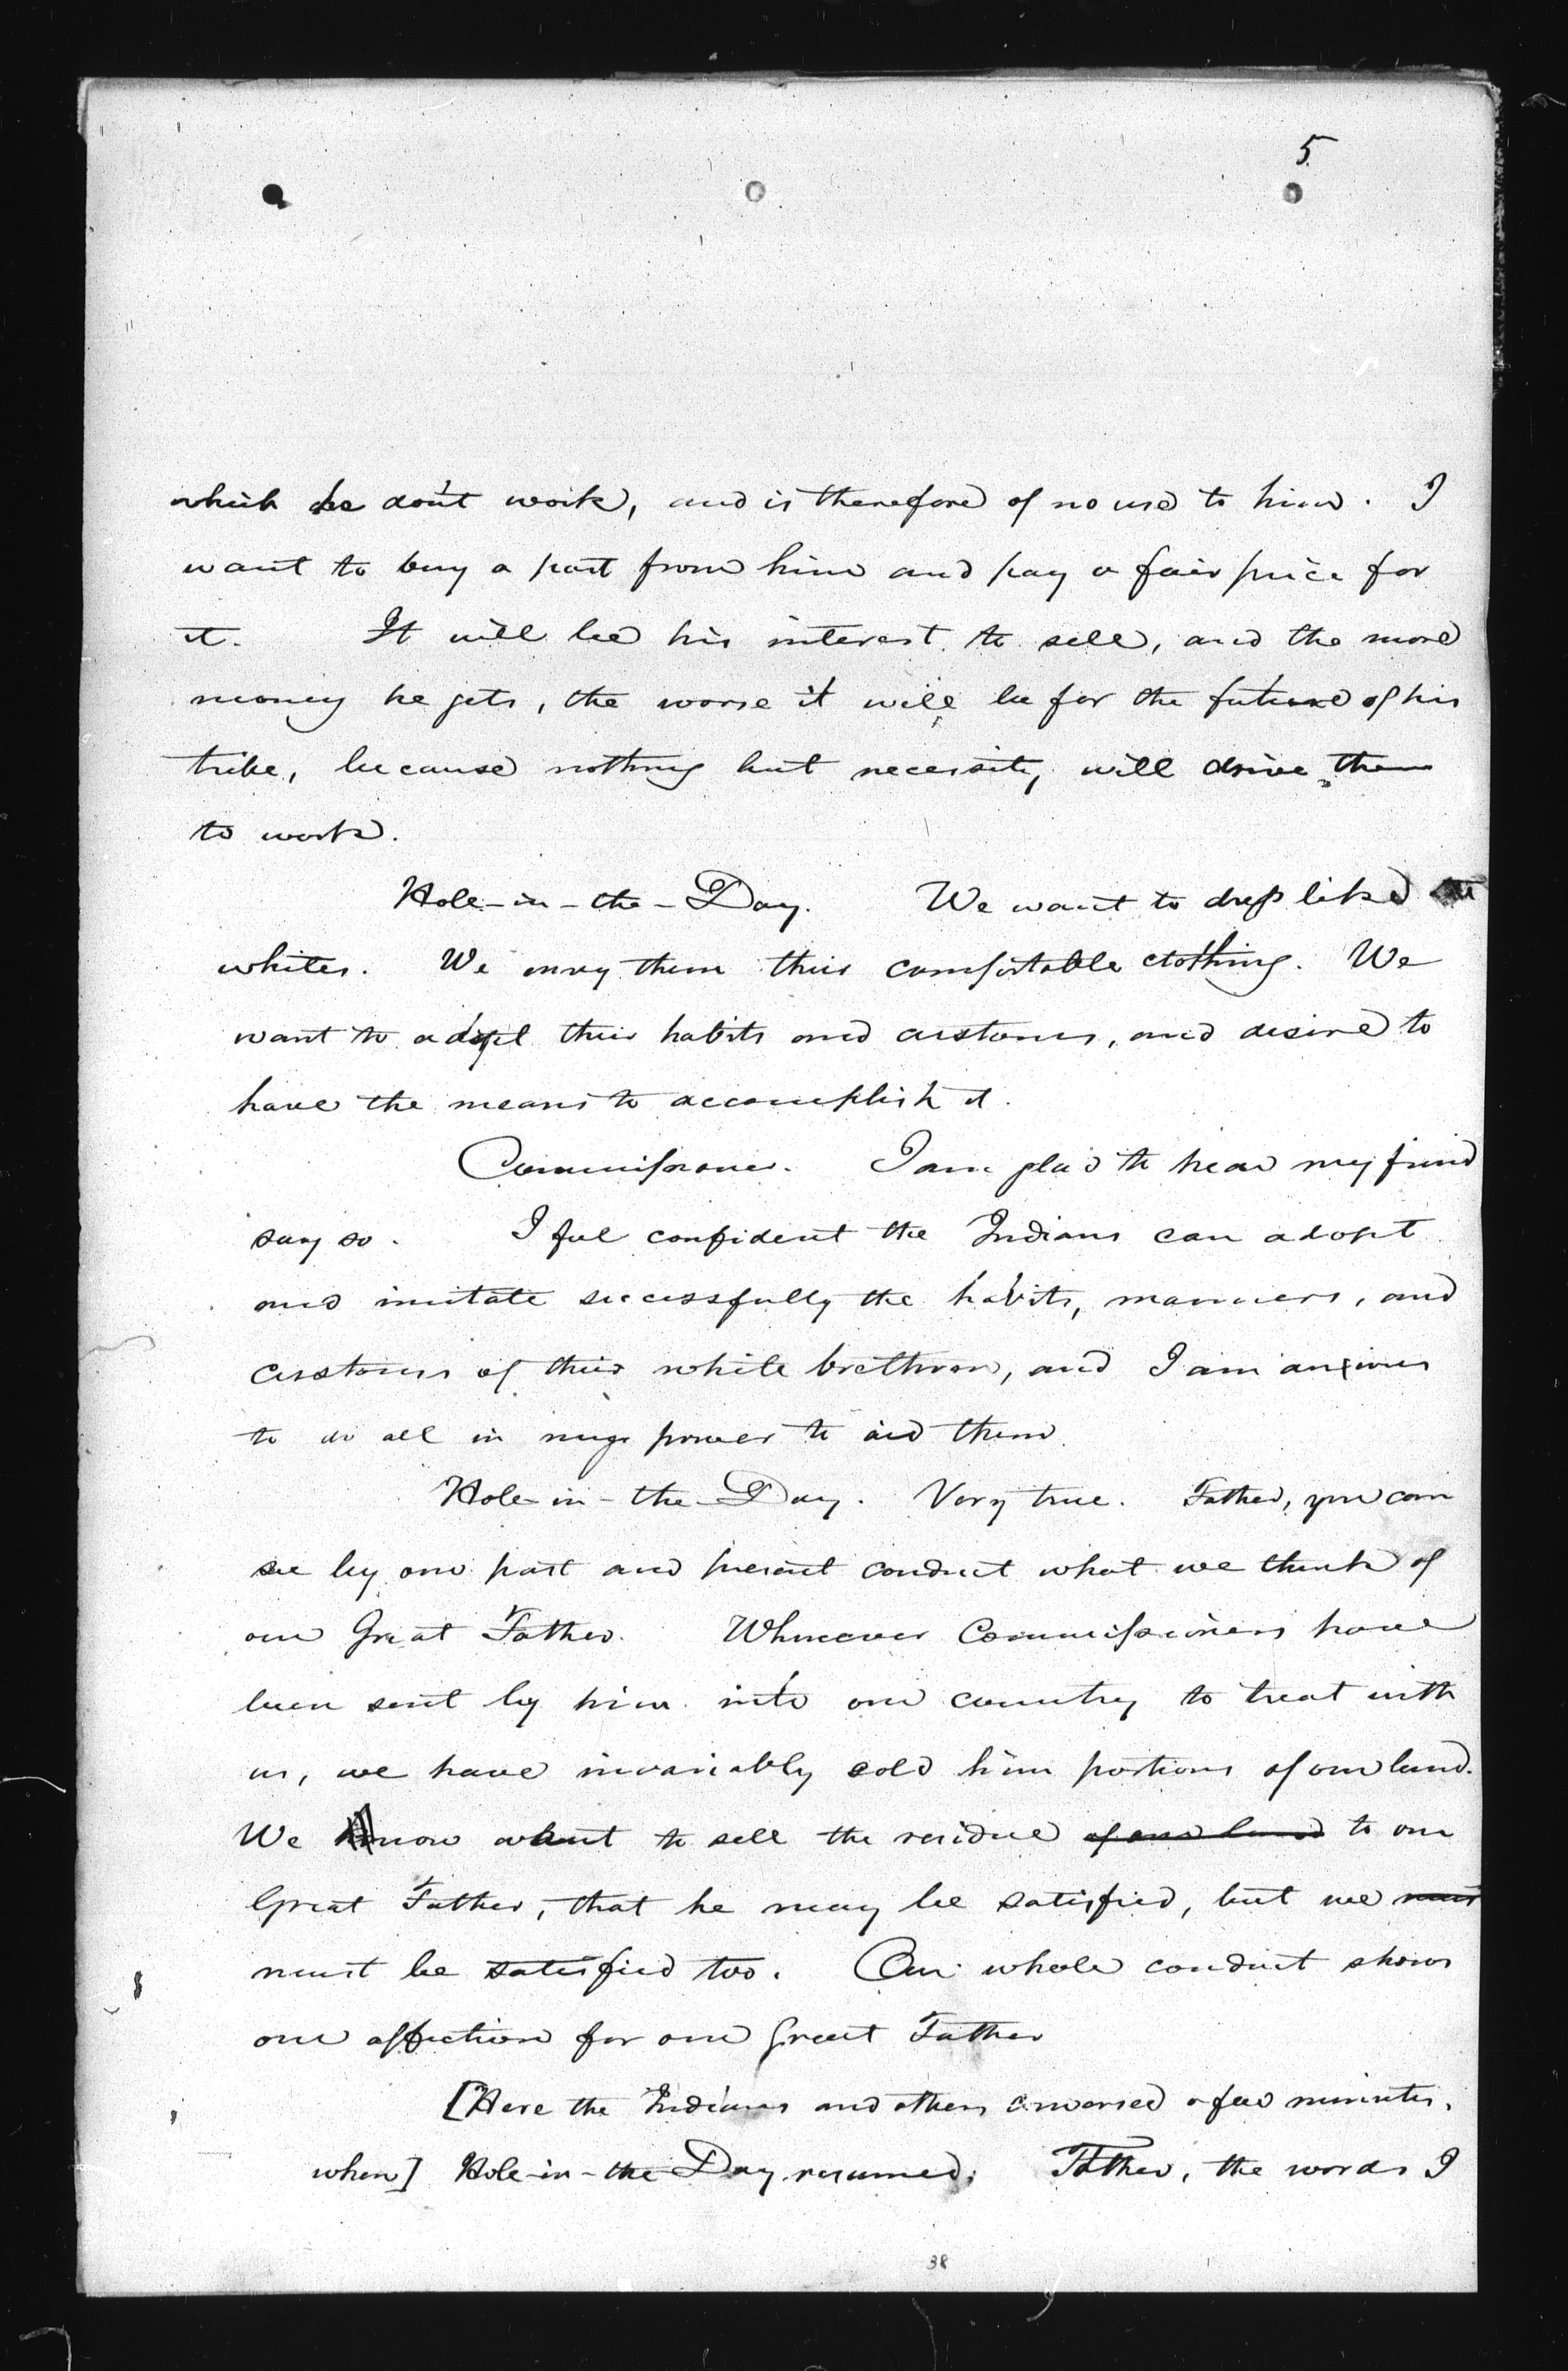 5
which he don't work, and is therefore of no use to him. I
want to buy a part from him and pay a fair price for
it. It will be his interest to sell, and the more
money he gets, the worse it will be for the future of his
tribe, because nothing but necessity will drive them
to work.
Hole-in-the-Day. We want to dress like the
whites. We envy them their comfortable clothing. We
want to adopt their habits and customs, and desire to
have the means to accomplish it.
Commissioner. I am glad to hear my friend
say so. I feel confident the Indians can adopt
and imitate successfully the habits, manners, and
customs of their white brethren, and I am anxious
to do all in my power to aid them.
Hole-in-the-Day. Very true. Father, you can
see by our past and present conduct what we think of
our Great Father. Whenever Commissioners have
been sent by him into our country to treat with
us, we have invariably sold him portions of our land.
We now want to sell the residue of our land to our
Great Father, that he may be satisfied, but we must
must be satisfied too. Our whole conduct shows
our affection for our Great Father
[Here the Indians and others conversed a few minutes,
when] Hole-in-the-Day resumed: Father, the words I
38